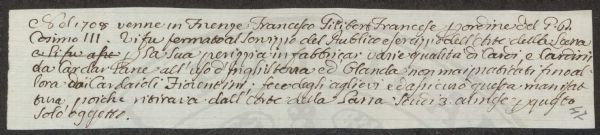 Nel 1708 venne in Firenze Francesco Filibert Francese p ordine del G. D.
Cosimo III. Vi fu fermato al Servizio del Publico e servizio dell'Arte della Lana
e si fu p la sua perizia in fabbricar varie qualità di Cardi, e Cardini
da Cardar Pane all'uso d'Inghilterra ed Olanda non mai praticati fino al=
lora da i Cardaioli Fiorentini, fece degli aglievi ed aprì uno questa manifat=
tura, poiche ritirava dall'Arte della Lana Scudi 3. al mese p questo
solo oggetto.
42